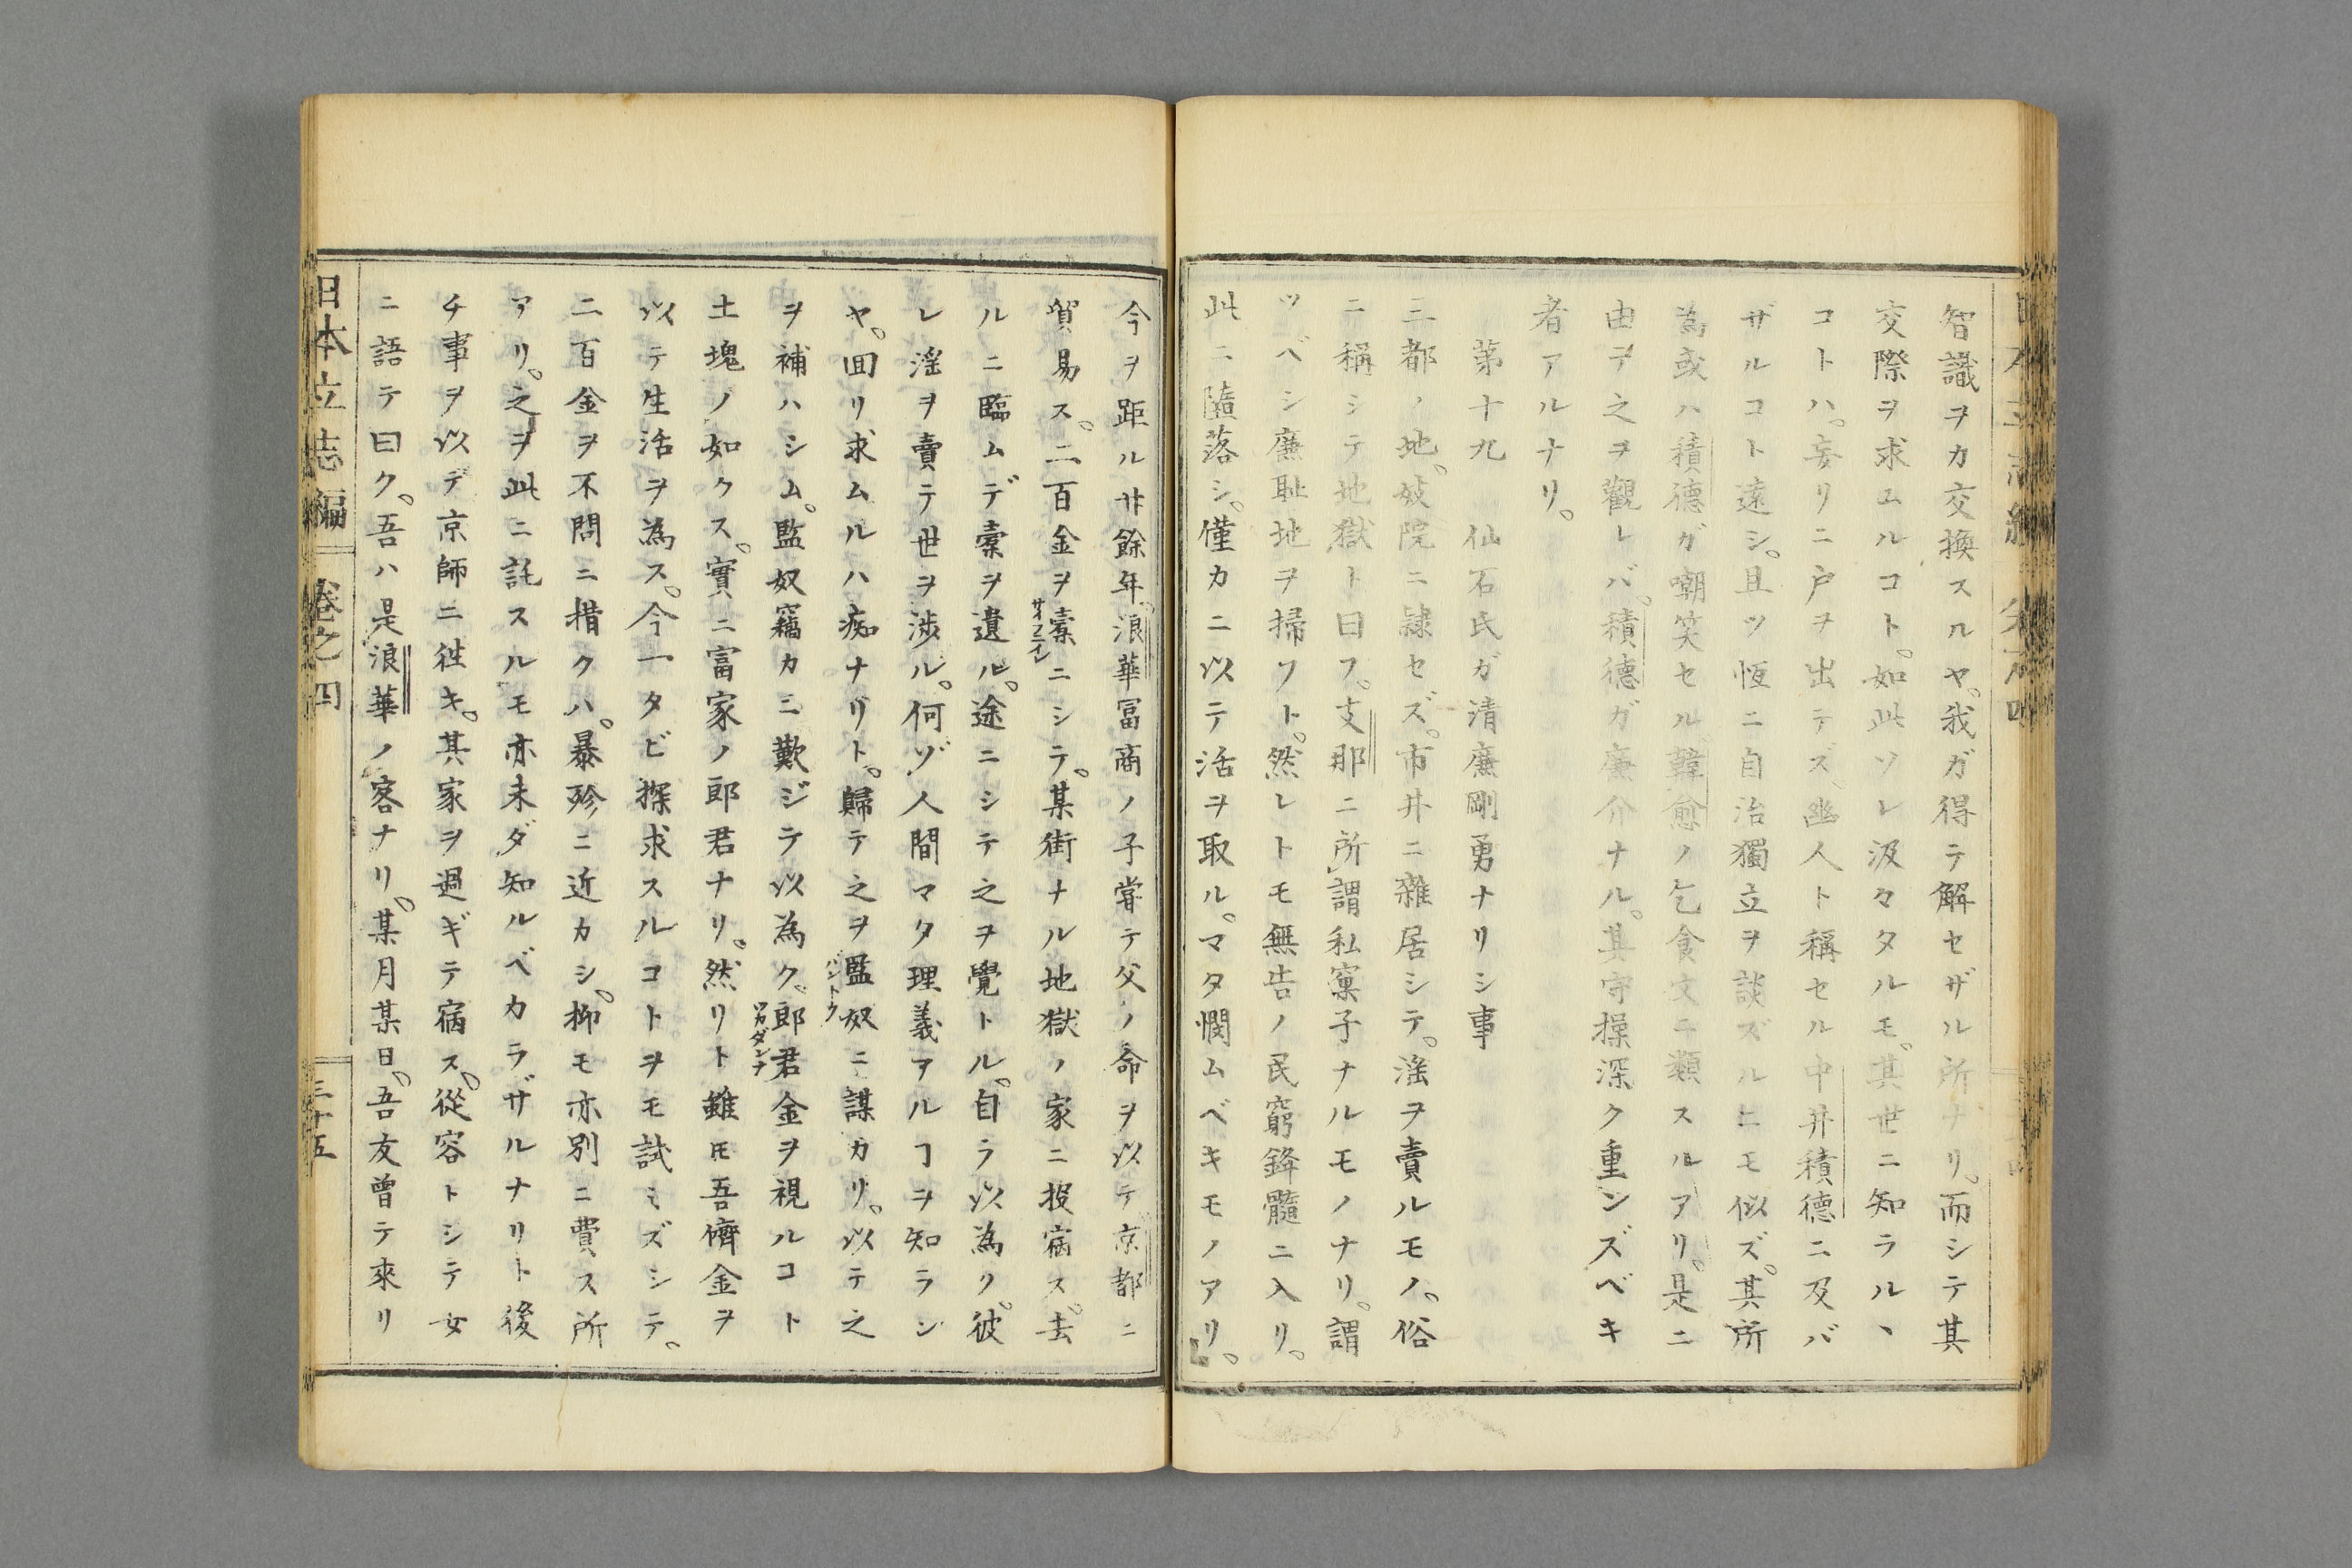 智識ヲカ交換スルヤ。我ガ得テ解セザル所ナリ。而シテ其
交際ヲ求ムルコト。如此ソレ汲々タルモ。其世ニ知ラルヽ
コトハ。妄リニ戸ヲ出テズ。幽人ト稱セル中井積德ニ及バ
ザルコト遠シ。且ツ恆ニ自治獨立ヲ談ズルニモ似ズ。其所
為或ハ積德ガ嘲笑セル韓愈ノ乞食文ニ類スルアリ。是ニ
由ヲ之ヲ觀レバ。積德ガ廉介ナル。其守操深ク重ンズベキ
者アルナリ。
第十九 仙石氏ガ清廉剛勇ナリシ事
三都ノ地。妓院ニ隷セズ。市井ニ雜居シテ。淫ヲ賣ルモノ。俗
ニ稱シテ地獄ト曰フ。支那ニ所謂私窠子ナルモノナリ。謂
ツベシ廉耻地ヲ掃フト。然レトモ無告ノ民窮鋒髓ニ入リ。
此ニ隨落シ。僅カニ以テ活ヲ取ル。マタ憫ムベキモノアリ。
今ヲ距ル廿餘年。浪華冨商ノ子甞テ父ノ命ヲ以テ京都ニ
貿易ス。二百金ヲ橐ニシテ。某街ナル地獄ノ家ニ投宿ス。去
ルニ臨ムデ橐ヲ遺ル。途ニシテ之ヲ覺トル。自ラ以為ク。彼
レ淫ヲ賣テ世ヲ渉ル。何ゾ人間マタ理義アルヿヲ知ラン
ヤ。囬リ求ムルハ痴ナリト。歸テ之ヲ監奴ニ謀カリ。以テ之
ヲ補ハシム。監奴竊カニ歎ジテ以為ク。郎君金ヲ視ルコト
土塊ノ如クス。實ニ富家ノ郎君ナリ。然リト雖𪜈吾儕金ヲ
以テ生活ヲ為ス。今一タビ探求スルコトヲモ試ミズシテ。
二百金ヲ不問ニ措クハ。暴殄ニ近カシ。抑モ亦別ニ費ス所
アリ。之ヲ此ニ託スルモ亦未ダ知ルベカラザルナリト後
チ事ヲ以デ京師ニ徃キ。其家ヲ過ギテ宿ス。從容トシテ女
ニ語テ曰ク。吾ハ是浪華ノ客ナリ。某月某日。吾友曾テ來リ
日本立志編 卷之四 三十五